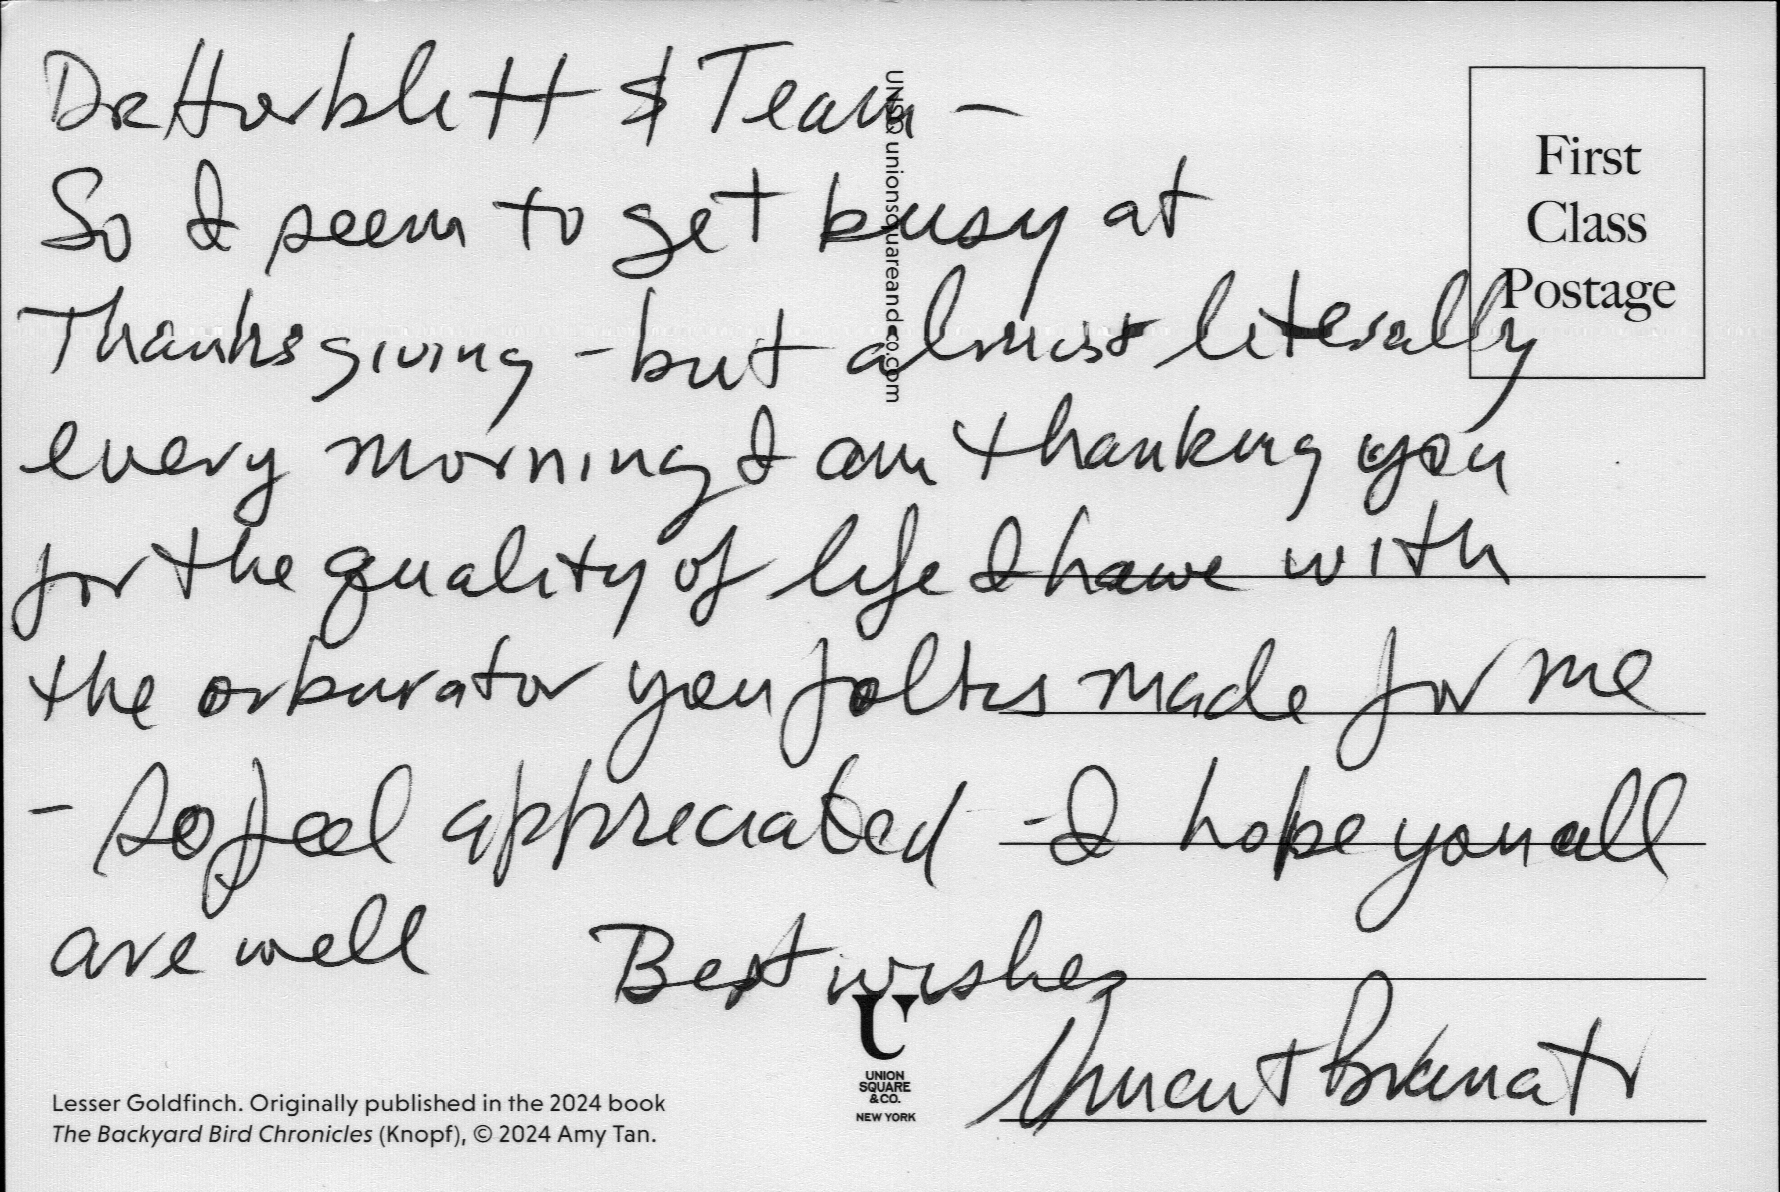 Dr Horblitt & Team –
So I seem to get busy at
Thanksgiving – but almost literally
every morning I am thanking you
for the quality of life I have with
the orburator you folks made for me
– So feel appreciated – I hope you all
are well Best wishes
First
Class
Postage
UNSQ unionsquareandco.com
U
UNION
SQUARE
& CO.
NEW YORK
Lesser Goldfinch. Originally published in the 2024 book
The Backyard Bird Chronicles (Knopf), © 2024 Amy Tan.